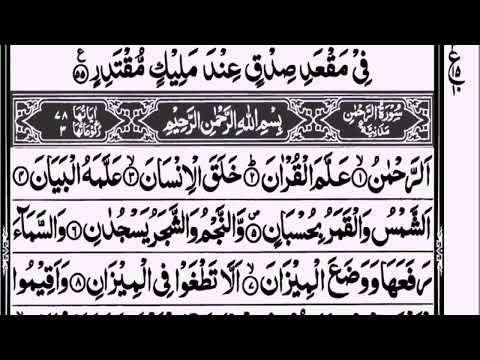 فِيْ مَقْعَدِ صِدْقٍ عِنْدَ مَلِيْكٍ مُّقْتَدِرٍ ۝٥٥
ع ١٥ ١٠
سُوْرَةُ الرَّحْمٰنِ مَدَنِيَّةٌ بِسْمِ اللهِ الرَّحْمٰنِ الرَّحِيْمِ اٰيَاتُهَا ٧٨ رُكُوْعَاتُهَا ٣
اَلرَّحْمٰنُ ۝١ عَلَّمَ الْقُرْاٰنَ ۝٢ خَلَقَ الْاِنْسَانَ ۝٣ عَلَّمَهُ الْبَيَانَ ۝٤
اَلشَّمْسُ وَالْقَمَرُ بِحُسْبَانٍ ۝٥ وَّالنَّجْمُ وَالشَّجَرُ يَسْجُدٰنِ ۝٦ وَالسَّمَآءَ
رَفَعَهَا وَوَضَعَ الْمِيْزَانَ ۝٧ اَلَّا تَطْغَوْا فِي الْمِيْزَانِ ۝٨ وَاَقِيْمُوا